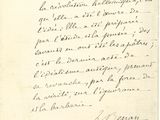 la révolution hellénique,
qu'elle a été l'œuvre de
l'idée. Elle a été préparée
par l'étude et la pensée ; des
savants en ont été les apôtres ;
c'est le dernier acte de
l'idéalisme antique, prenant
sa revanche, par la force de
la vérité, sur l'ignorance
et la barbarie.
E. Renan